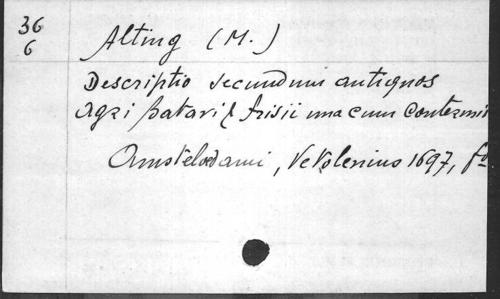 36
6
Alting (M.)
Descriptio secundum antiquos
Agri Batavi & Frisii una cum Contermi
Amstelodami, 1697, fo